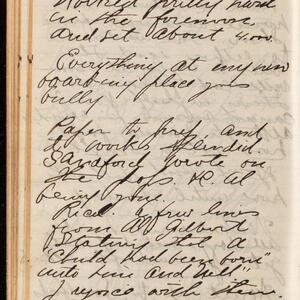 Worked pretty hard
in the forenoon
and set about 4.000.
Everything at my new
boarding place goes
bully
Paper to press, and
it works splendid.
Sandford wrote on
the
being gone.
Recd. a few lines
from Al Gilbert
Stating that a
"Child had been born"
unto him and well"
I rejoice with them.